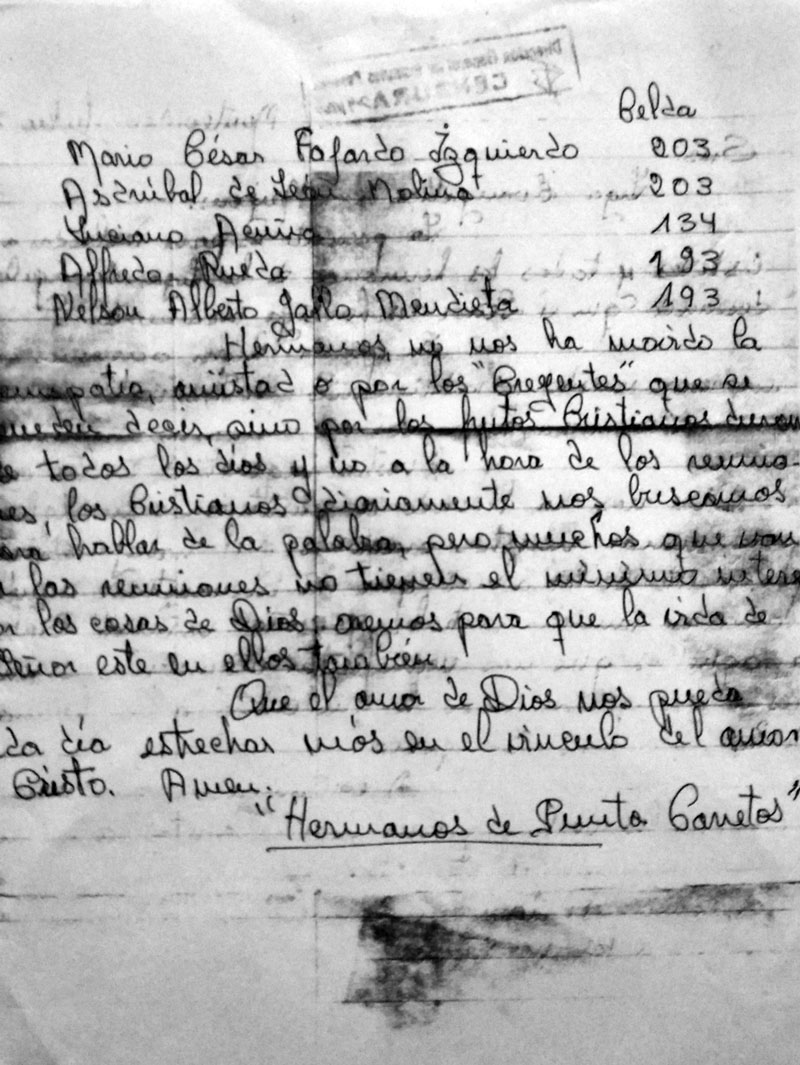 Celda
Mario César Fafardo Izquierdo 203
Asdrúbal de León Molina 203
Luciano 134
Alfredo Rueda 193
Nelson Alberto Mendieta 193
Hermanos, no nos ha movido la
amistad o por los "Creyentes" que se
pueden decir, sino por los frutos Cristianos
todos los días y no a la hora de los
los Cristianos diariamente nos buscamos
hablar de la palabra, pero muchos que van
a las reuniones no tienen el mínimo
las cosas de Dios, oremos para que la vida de
Señor este en ellos también.
Que el amor de Dios nos pueda
da día estrechar más en el vinculo del amor
Cristo. Amen.
"Hermanos de Punta Carretos"